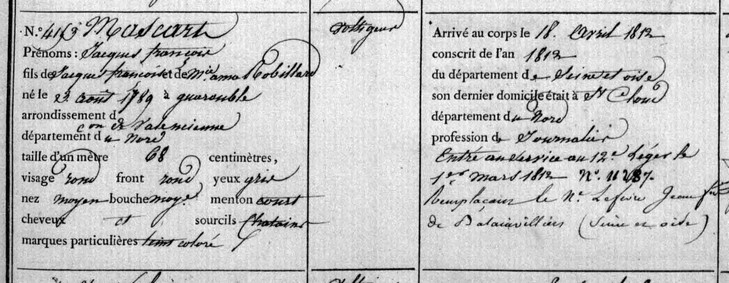 N.° 4113 Mascart
Prénoms : Jacques françois
fils de Jacques francois et de M.ie anne Robillard
né le 2 août 1789 à quarouble
arrondissement d
con de Valencienne
département du Nord
taille d'un mètre 68 centimètres,
visage rond front rond yeux gris
nez moyen bouche moye menton court
cheveux et sourcils Chatains
marques particulières teint coloré
Voltigeur
Arrivé au corps le 18. Avril 1812
conscrit de l'an 1812
du département de Seine et oise
son dernier domicile était à St Cloud
département du Nord
profession de Journalier
Entré au service au 12e Léger le
1er mars 1812 N.° 11287.
Remplaçant le Né Lefevre Jean
de (Seine et oise)